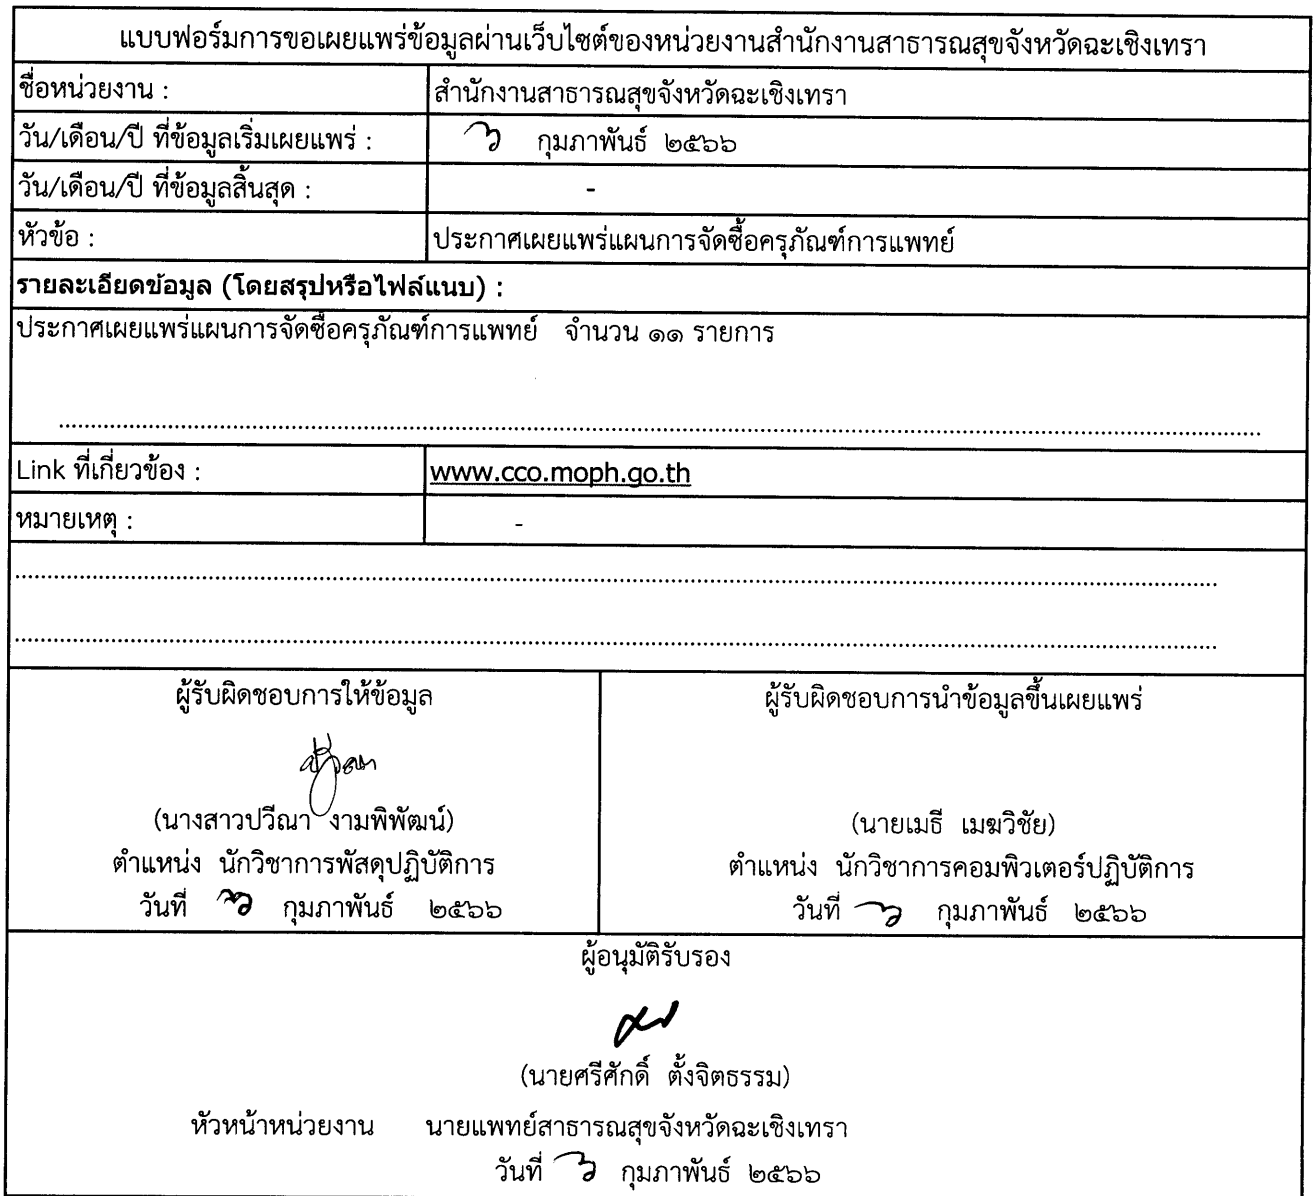 แบบฟอร์มการขอเผยแพร่ข้อมูลผ่านเว็บไซต์ของหน่วยงานสำนักงานสาธารณสุขจังหวัดฉะเชิงเทรา
ชื่อหน่วยงาน : สำนักงานสาธารณสุขจังหวัดฉะเชิงเทรา
วัน/เดือน/ปี ที่ข้อมูลเริ่มเผยแพร่ : ๖ กุมภาพันธ์ ๒๕๖๖
วัน/เดือน/ปี ที่ข้อมูลสิ้นสุด : -
หัวข้อ : ประกาศเผยแพร่แผนการจัดซื้อครุภัณฑ์การแพทย์
รายละเอียดข้อมูล (โดยสรุปหรือไฟล์แนบ) :
ประกาศเผยแพร่แผนการจัดซื้อครุภัณฑ์การแพทย์ จำนวน ๑๑ รายการ
Link ที่เกี่ยวข้อง : www.cco.moph.go.th
หมายเหตุ : -
ผู้รับผิดชอบการให้ข้อมูล
(นางสาวปวีณา งามพิพัฒน์)
ตำแหน่ง นักวิชาการพัสดุปฏิบัติการ
วันที่ ๖ กุมภาพันธ์ ๒๕๖๖
ผู้รับผิดชอบการนำข้อมูลขึ้นเผยแพร่
(นายเมธี เมฆวิชัย)
ตำแหน่ง นักวิชาการคอมพิวเตอร์ปฏิบัติการ
วันที่ ๖ กุมภาพันธ์ ๒๕๖๖
ผู้อนุมัติรับรอง
(นายศรีศักดิ์ ตั้งจิตธรรม)
หัวหน้าหน่วยงาน นายแพทย์สาธารณสุขจังหวัดฉะเชิงเทรา
วันที่ ๖ กุมภาพันธ์ ๒๕๖๖